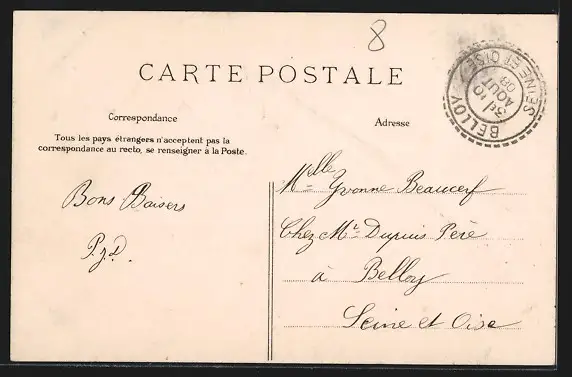 8
CARTE POSTALE
Correspondance
Adresse
Tous les pays étrangers n'acceptent pas la
correspondance au recto, se renseigner à la Poste.
BELLOY
SEINE ET OISE
AOUT
08
Bons Baisers
Melle Yvonne Beaucerf
Chez Mr Dupuis Père
à Belloy
Seine et Oise